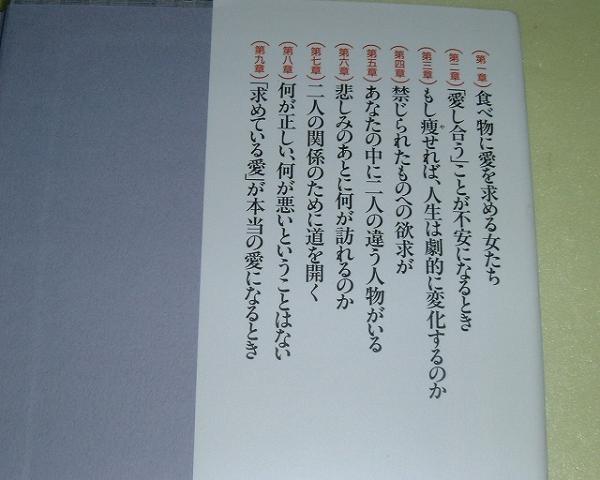 (第一章) 食べ物に愛を求める女たち
(第二章) 「愛し合う」ことが不安になるとき
(第三章) もし痩せれば、人生は劇的に変化するのか
(第四章) 禁じられたものへの欲求が
(第五章) あなたの中に二人の違う人物がいる
(第六章) 悲しみのあとに何が訪れるのか
(第七章) 二人の関係のために道を開く
(第八章) 何が正しい、何が悪いということはない
(第九章) 「求めている愛」が本当の愛になるとき